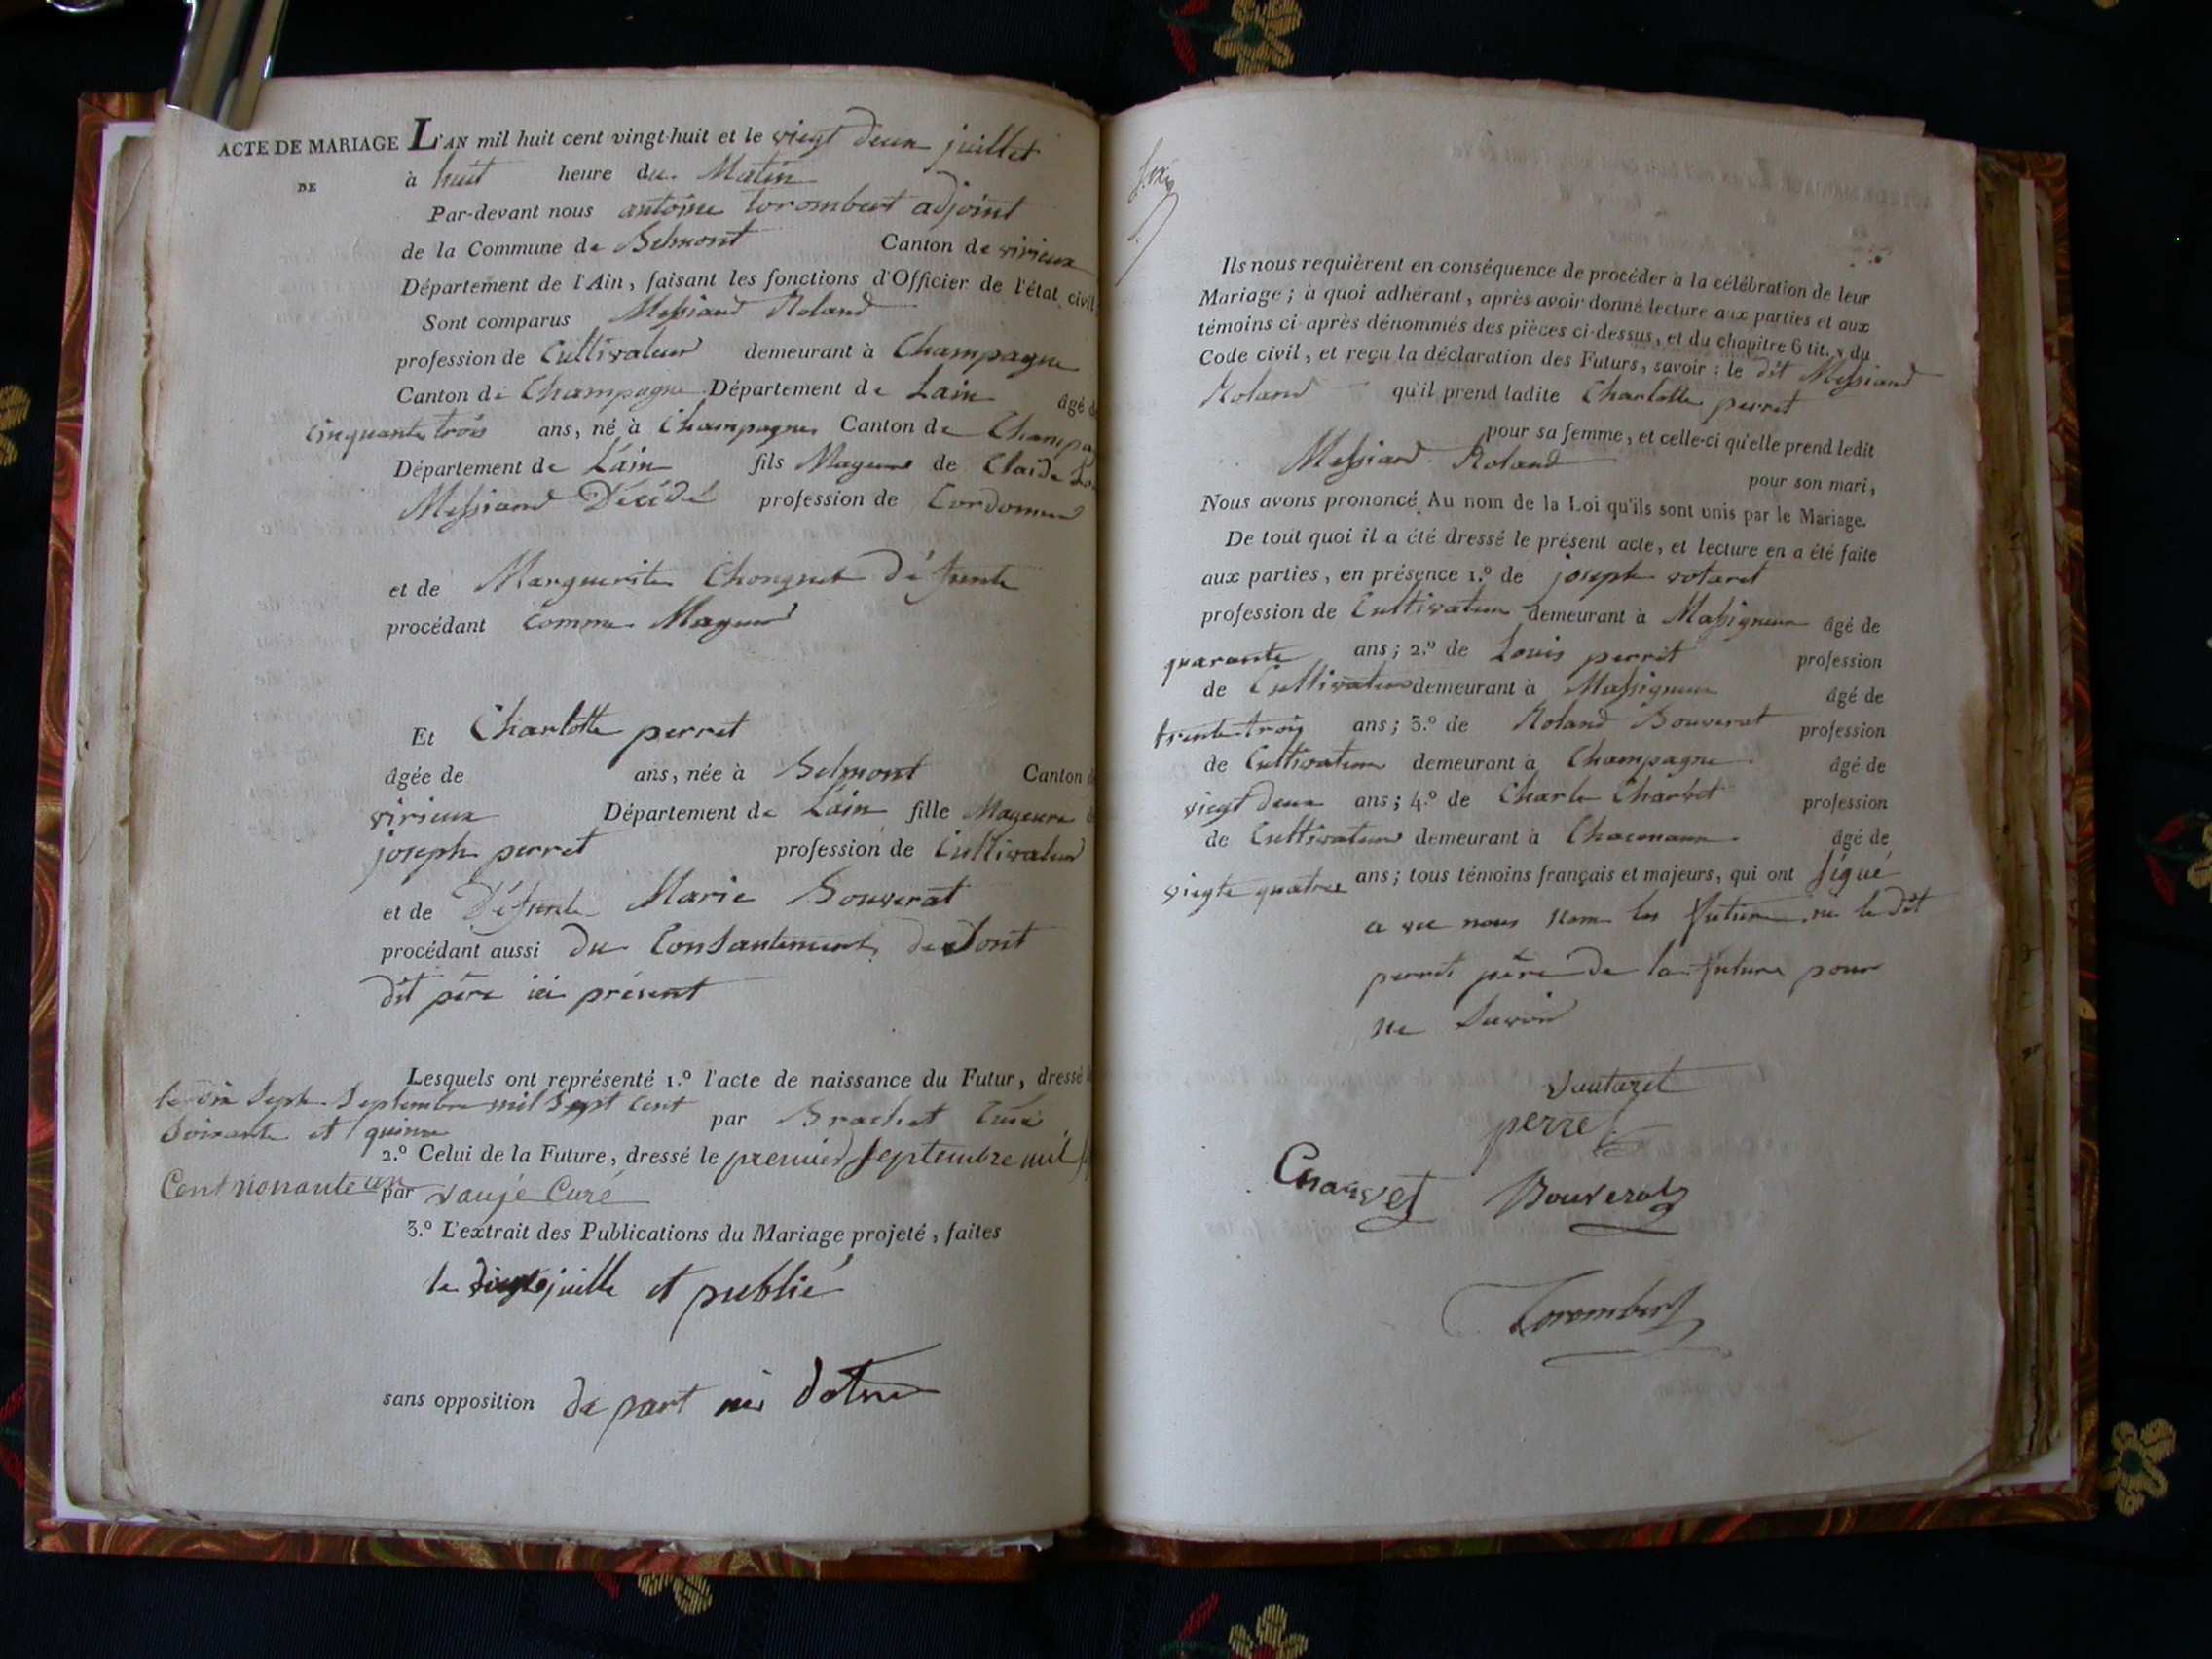 ACTE DE MARIAGE L'AN mil huit cent vingt-huit et le viegt deux juillet
DE à huit heure du Matin
Par-devant nous antoine torombert adjoint
de la Commune de Belmont Canton de virieux
Département de l'Ain, faisant les fonctions d'Officier de l'état civil
Sont comparus Messiand Roland
profession de Cultivateur demeurant à Champagne
Canton de Champagne Département de Lain âgé de
cinquante trois ans, né à Champagne Canton de Champa
Département de Lain fils Mageur de Claide
Messiand Décédé profession de Cordonnier
et de Marguerite Chongnet défunte
procédant comme Mageur
Et Charlotte perret
âgée de ans, née à Belmont Canton de
virieux Département de Lain fille Mageure de
joseph perret profession de Cultivateur
et de Défunte Marie Bouverat
procédant aussi du Consantement de Sont
dit père ici présent
Lesquels ont représenté 1.º l'acte de naissance du Futur, dressé
le Septembre mil Sept Cent
Soixante et quinze par Brachet Curé
2.º Celui de la Future, dressé le premier septembre mil
Cent nonante un par vaugé Curé
3.º L'extrait des Publications du Mariage projeté, faites
le juille et publié
sans opposition de part ni dotre
Ils nous requièrent en conséquence de procéder à la célébration de leur
Mariage; à quoi adhérant, après avoir donné lecture aux parties et aux
témoins ci-après dénommés des pièces ci-dessus, et du chapitre 6 tit. v du
Code civil, et reçu la déclaration des Futurs, savoir: le dit Messiand
Roland qu'il prend ladite Charlotte perret
pour sa femme, et celle-ci qu'elle prend ledit
Messiand Roland
pour son mari,
Nous avons prononcé Au nom de la Loi qu'ils sont unis par le Mariage.
De tout quoi il a été dressé le présent acte, et lecture en a été faite
aux parties, en présence 1.º de joseph votaret
profession de Cultivateur demeurant à Massigneux âgé de
quarante ans; 2.º de Louis perret profession
de Cultivateur demeurant à Massigneux âgé de
trente trois ans; 3.º de Roland Bouverat profession
de Cultivateur demeurant à Champagne âgé de
viegt deux ans; 4.º de Charle Charvet profession
de Cultivateur demeurant à âgé de
viegte quatre ans; tous témoins français et majeurs, qui ont Sigué
a vec nous nom les future ni le dit
perret père de la future pour
ne Savoir
Vautaret
perret
Charvet Bouverat
Torombert